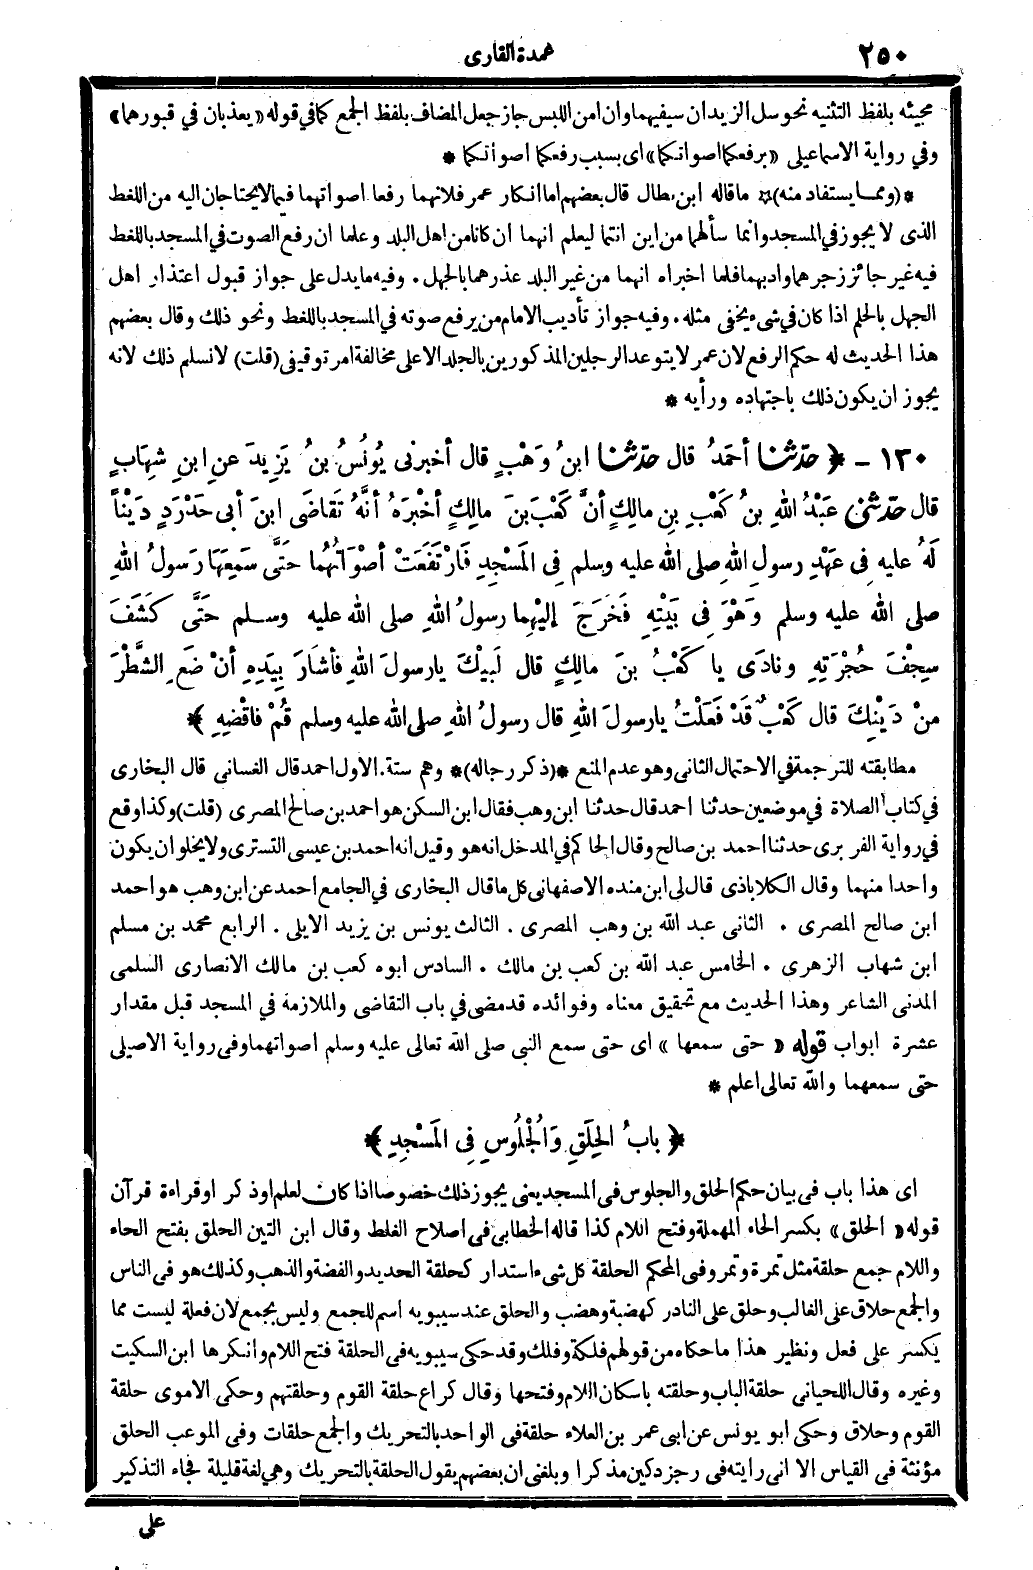 ٢٥٠
عمدة القارى
مجيئه بلفظ التثنيه نحو سل الزيدان سيفيهما وان امن اللبس جاز جعل المضاف بلفظ الجمع كما في قوله «يعذبان في قبورهما»
وفي رواية الاسماعيلى «برفعكما اصواتكما» اى بسبب رفعكما اصواتكما *
*(ومما يستفاد منه)* ما قاله ابن بطال قال بعضهم اما انكار عمر فلانهما رفعا اصواتهما فيما لا يحتاجان اليه من اللغط
الذى لا يجوز في المسجد وانما سألهما من اين انتما ليعلم انهما ان كانا من اهل البلد وعلما ان رفع الصوت في المسجد باللغط
فيه غير جائز زجرهما وادبهما فلما اخبراه انهما من غير البلد عذرهما بالجهل . وفيه ما يدل على جواز قبول اعتذار اهل
الجهل بالحلم اذا كان في شىء يخفى مثله . وفيه جواز تأديب الامام من يرفع صوته في المسجد باللغط ونحو ذلك وقال بعضهم
هذا الحديث له حكم الرفع لان عمر لا يتوعد الرجلين المذكورين بالجلد الا على مخالفة امر توقيفى (قلت) لا نسلم ذلك لانه
يجوز ان يكون ذلك باجتهاده ورأيه *
١٣٠ - ﴿ حَدّثنا أحمَدُ قال حَدّثنا ابنُ وَهْبٍ قال أخبرنى يُونُسُ بنُ يَزِيدَ عنِ ابنِ شِهَابٍ
قال حَدّثنى عَبْدُ اللهِ بنُ كَعْبِ بنِ مالِكٍ أنَّ كَعْبَ بنَ مالِكٍ أخْبَرَهُ أنَّهُ تَقاضَى ابنَ أبى حَدْرَدٍ دَيْناً
لَهُ عليه فِى عَهْدِ رسولِ اللهِ صلى الله عليه وسلم فِى المَسْجِدِ فَارْتَفَعَتْ أصْوَاتُهُما حَتَّى سَمِعَهَا رَسولُ اللهِ
صلى الله عليه وسلم وَهْوَ فِى بَيْتِهِ فَخَرَجَ إليْهِما رسولُ اللهِ صلى الله عليه وسلم حَتَّى كَشَفَ
سِجْفَ حُجْرَتِهِ ونادَى يا كَعْبُ بنَ مالِكٍ قال لَبيْكَ يا رسولَ اللهِ فأشَارَ بِيَدِهِ أنْ ضَعِ الشَّطْرَ
مِنْ دَيْنِكَ قال كَعْبٌ قَدْ فَعَلْتُ يا رسولَ اللهِ قال رسولُ اللهِ صلى الله عليه وسلم قُمْ فاقْضِهِ ﴾
مطابقته للترجمة في الاحتمال الثانى وهو عدم المنع *(ذكر رجاله)* وهم ستة . الاول احمد قال الغسانى قال البخارى
في كتاب الصلاة في موضعين حدثنا احمد قال حدثنا ابن وهب فقال ابن السكن هو احمد بن صالح المصرى (قلت) وكذا وقع
في رواية الفربرى حدثنا احمد بن صالح وقال الحاكم في المدخل انه هو وقيل انه احمد بن عيسى التسترى ولا يخلو ان يكون
واحدا منهما وقال الكلاباذى قال لى ابن منده الاصفهانى كل ما قال البخارى في الجامع احمد عن ابن وهب هو احمد
ابن صالح المصرى . الثانى عبد الله بن وهب المصرى . الثالث يونس بن يزيد الايلى . الرابع محمد بن مسلم
ابن شهاب الزهرى . الخامس عبد الله بن كعب بن مالك . السادس ابوه كعب بن مالك الانصارى السلمى
المدنى الشاعر وهذا الحديث مع تحقيق معناه وفوائده قد مضى في باب التقاضى والملازمة في المسجد قبل مقدار
عشرة ابواب قوله « حتى سمعها » اى حتى سمع النبى صلى الله تعالى عليه وسلم اصواتهما وفى رواية الاصيلى
حتى سمعهما والله تعالى اعلم *
﴿ بابُ الحِلَقِ وَالْجُلُوسِ فِى المَسْجِدِ ﴾
اى هذا باب فى بيان حكم الحلق والجلوس فى المسجد يعنى يجوز ذلك خصوصا اذا كان لعلم او ذكر او قراءة قرآن
قوله « الحلق » بكسر الحاء المهملة وفتح اللام كذا قاله الخطابى فى اصلاح الغلط وقال ابن التين الحلق بفتح الحاء
واللام جمع حلقة مثل تمرة وتمر وفى المحكم الحلقة كل شىء استدار كحلقة الحديد والفضة والذهب وكذلك هو فى الناس
والجمع حلاق على الغالب وحلق على النادر كهضبة وهضب والحلق عند سيبويه اسم للجمع وليس بجمع لان فعلة ليست مما
يكسر على فعل ونظير هذا ما حكاه من قولهم فلكة وفلك وقد حكى سيبويه فى الحلقة فتح اللام وانكرها ابن السكيت
وغيره وقال اللحيانى حلقة الباب وحلقته باسكان اللام وفتحها وقال كراع حلقة القوم وحلقتهم وحكى الاموى حلقة
القوم وحلاق وحكى ابو يونس عن ابى عمر بن العلاء حلقة فى الواحد بالتحريك والجمع حلقات وفى الموعب الحلق
مؤنثة فى القياس الا انى رايته فى رجز دكين مذكرا وبلغنى ان بعضهم يقول الحلقة بالتحريك وهى لغة قليلة فجاء التذكير
على